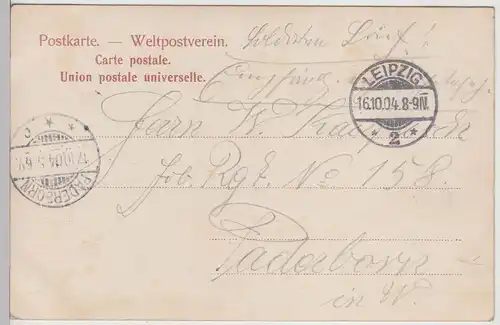 Postkarte. — Weltpostverein.
Carte postale.
Union postale universelle.
Soldaten Brief!
LEIPZIG
16.10.04.8-9N.
* 2 *
PADERBORN
17.10.04.5-6V.
* * c
Herrn W.
Rgt. No 158.
Paderborn
in W.